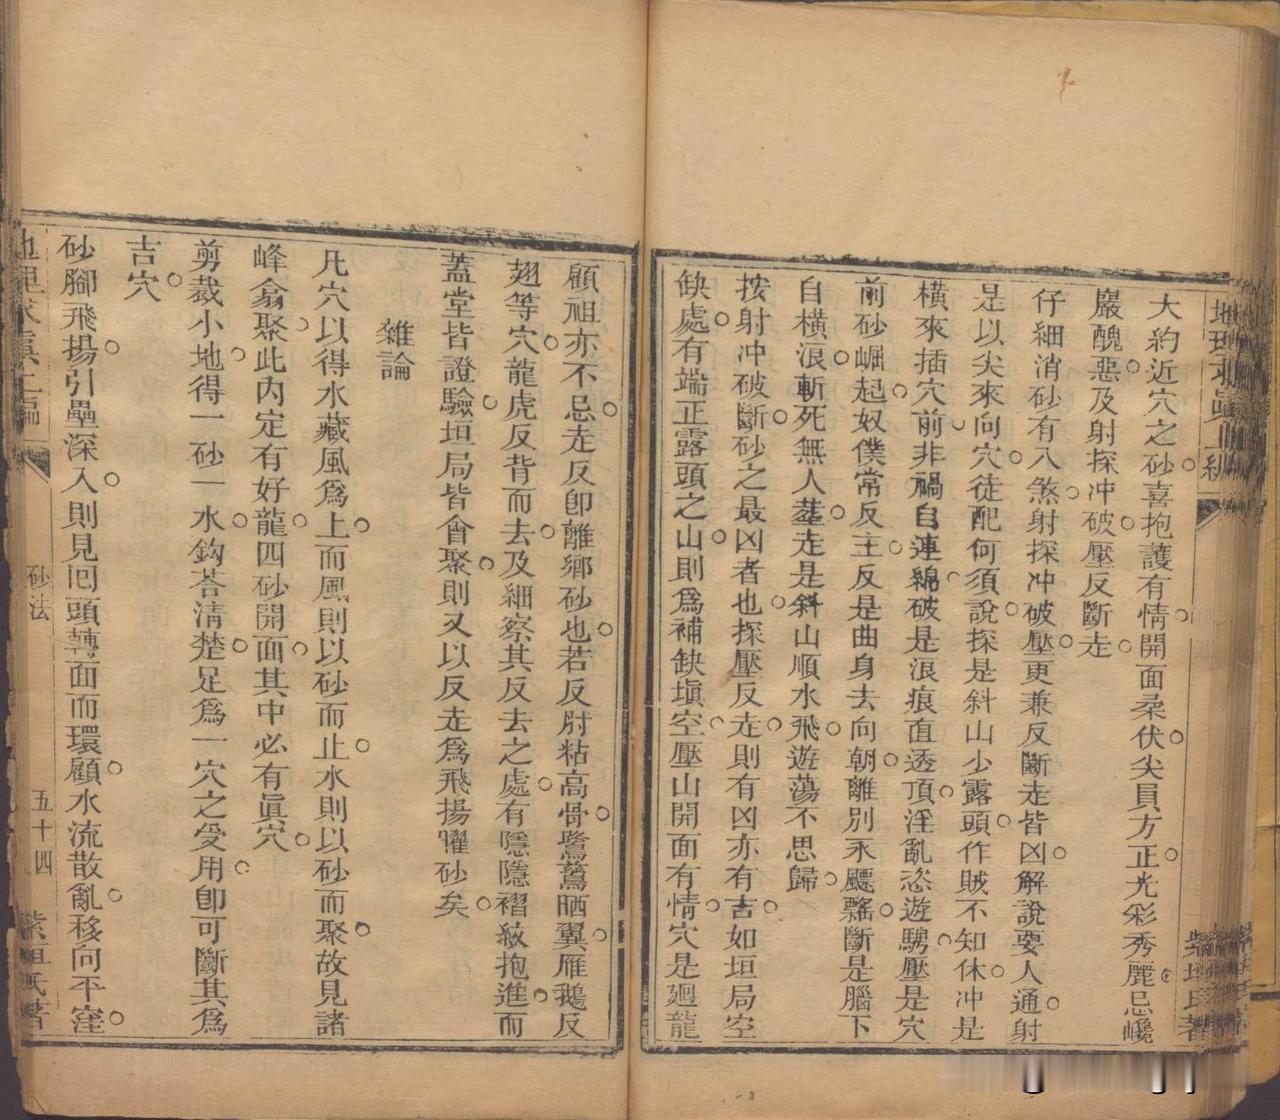 大約近穴之砂喜抱護有情開面柔伏尖員方正光彩秀麗忌巉
巖醜惡及射探冲破壓反斷走
仔細消砂有八煞射探冲破壓更兼反斷走皆凶解說要人通射
是以尖來向穴徒配何須說探是斜山少露頭作賊不知休冲是
橫來插穴前非禍自連綿破是浪痕面透頂淫亂恣遊騁壓是穴
前砂崛起奴僕常反主反是曲身去向朝離別永飃飖斷是腦下
自橫浪斬死無人塟走是斜山順水飛遊蕩不思歸
按射冲破斷砂之最凶者也探壓反走則有凶亦有吉如垣局空
缺處有端正露頭之山則爲補缺塡空壓山開面有情穴是廻龍
顧祖亦不忌走反卽離鄉砂也若反肘粘高骨鷺鷥晒翼雁鵝反
翅等穴龍虎反背而去及細察其反去之處有隱隱褶紋抱進而
蓋堂皆證驗垣局皆會聚則又以反走爲飛揚懼砂矣
雜論
凡穴以得水藏風爲上而風則以砂而止水則以砂而聚故見諸
峰翕聚此內定有好龍四砂開面其中必有眞穴
剪裁小地得一砂一水鈎荅清楚足爲一穴之受用卽可斷其爲
吉穴
砂腳飛揚引壘深入則見囘頭轉面而環顧水流散亂移向平窪
砂法
五十四